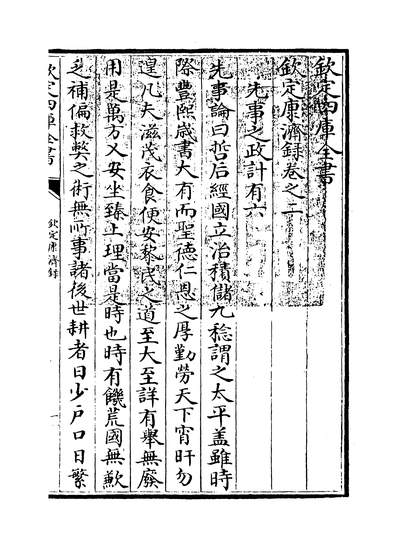 欽定四庫全書
欽定康濟錄卷之二
先事之政計有六
先事論曰哲后經國立治積儲九稔謂之太平蓋雖時
際豐熙歲書大有而聖德仁恩之厚勤勞天下宵旰勿
遑凡夫滋茂衣食便安黎民之道至大至詳有舉無廢
用是萬方乂安坐臻上理當是時也時有饑荒國無歉
乏補偏救弊之術無所事諸後世耕者日少戶口日繁
欽定四庫全書
欽定康濟錄
一